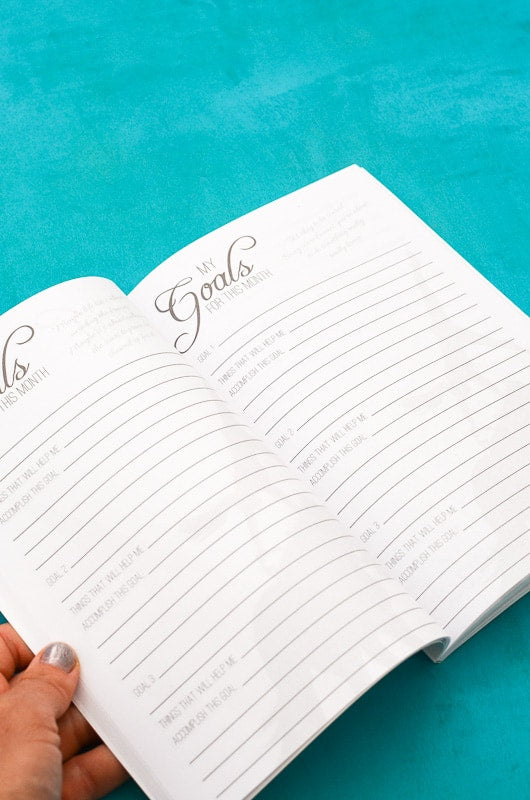 als
THIS MONTH
THINGS THAT WILL HELP ME
ACCOMPLISH THIS GOAL
GOAL 2
THINGS THAT WILL HELP ME
ACCOMPLISH THIS GOAL
GOAL 3
THINGS THAT WILL HELP ME
ACCOMPLISH THIS GOAL
MY
Goals
FOR THIS MONTH
GOAL 1
THINGS THAT WILL HELP ME
ACCOMPLISH THIS GOAL
GOAL 2
THINGS THAT WILL HELP ME
ACCOMPLISH THIS GOAL
GOAL 3
THINGS THAT WILL HELP ME
ACCOMPLISH THIS GOAL